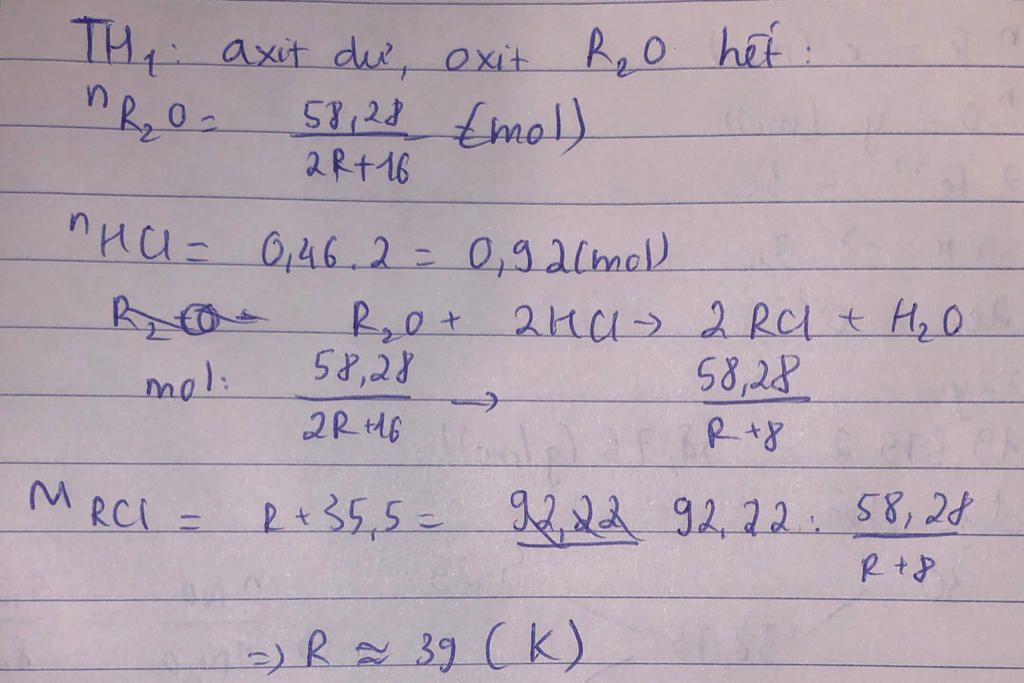 TH1: axit dư, oxit R2O hết:
nR2O = 58,28 / 2R+16 (mol)
nHCl = 0,46.2 = 0,92(mol)
R2O + 2HCl → 2RCl + H2O
mol: 58,28 / 2R+16 → 58,28 / R+8
MRCl = R+35,5 = 92,22 92,22 : 58,28 / R+8
=> R ≈ 39 (K)